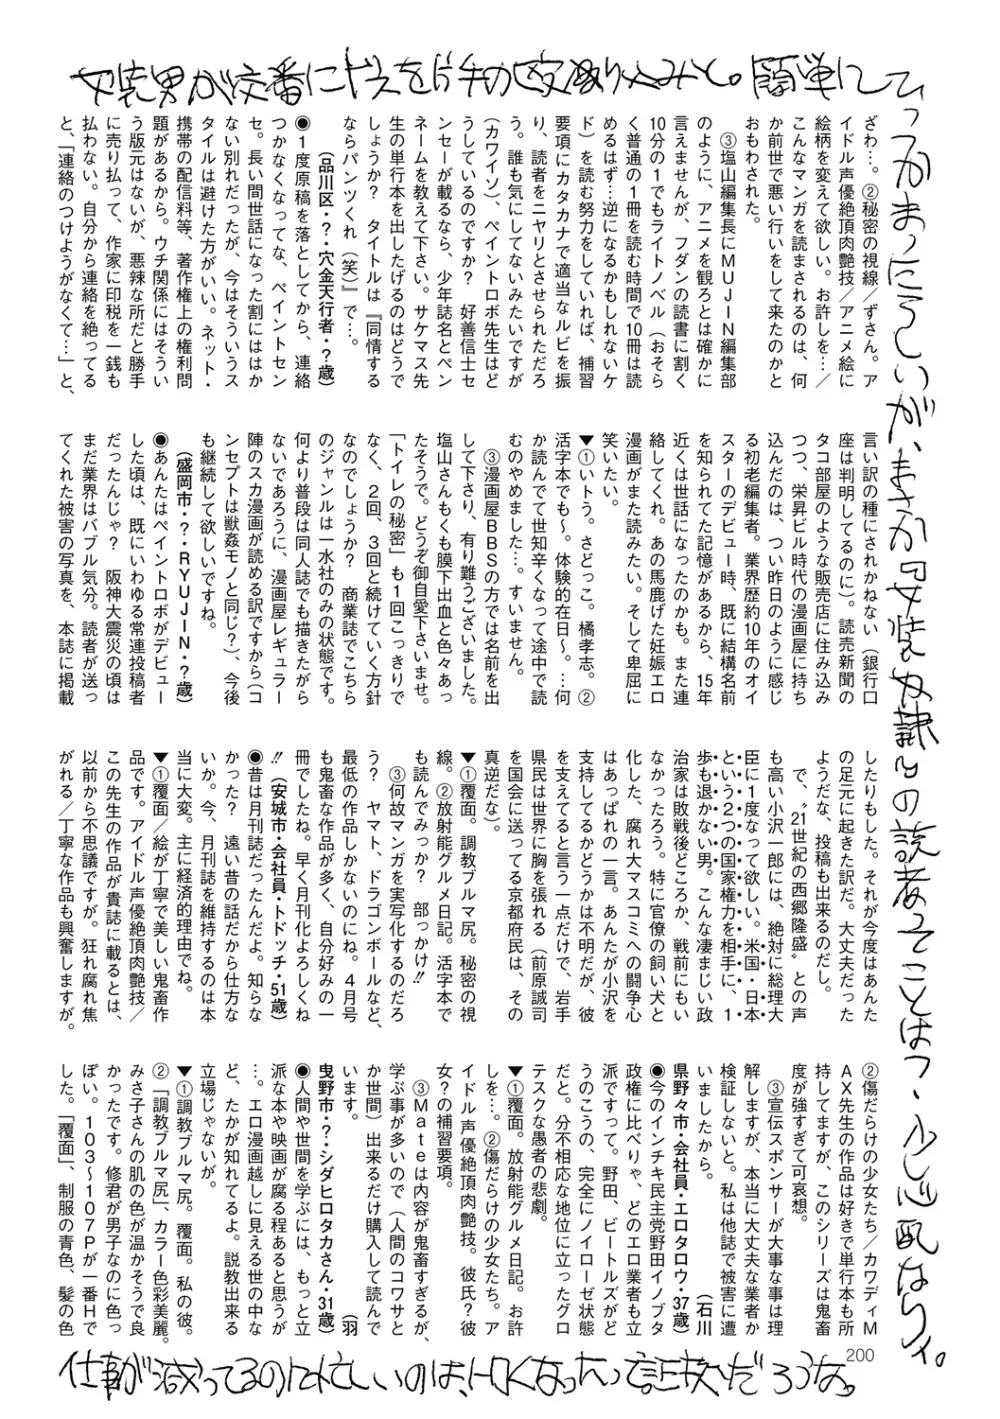 女装男が交番にドスを片手の殴り込みと。簡単にひ
っつかまったらしいが、まさか女装奴隷の読者ってことは？少し心配なりィ。
ざわ…。②秘密の視線／ずさん。ア
イドル声優絶頂肉艶技／アニメ絵に
絵柄を変えて欲しい。お許しを…／
こんなマンガを読まされるのは、何
か前世で悪い行いをして来たのかと
おもわされた。
③塩山編集長にＭＵＪＩＮ編集部
のように、アニメを観ろとは確かに
言えませんが、フダンの読書に割く
10分の１でもライトノベル（おそら
く普通の１冊を読む時間で10冊は読
めるはず…逆になるかもしれないケ
ド）を読む努力をしていれば、補習
要項にカタカナで適当なルビを振
り、読者をニヤリとさせられただろ
う。誰も気にしてないみたいですが
（カワイソ）、ペイントロボ先生はど
うしているのですか？　好善信士セ
ンセーが載るなら、少年誌名とペン
ネームを教えて下さい。サケマス先
生の単行本を出したげるのはどうで
しょうか？　タイトルは『同情する
ならパンツくれ（笑）』で…。
（品川区・？・穴金天行者・？歳）
●１度原稿を落としてから、連絡
つかなくなってな、ペイントセン
セ。長い間世話になった割にははか
ない別れだったが、今はそういうス
タイルは避けた方がいい。ネット・
携帯の配信料等、著作権上の権利問
題があるから。ウチ関係にはそうい
う版元はないが、悪辣な所だと勝手
に売り払って、作家に印税を一銭も
払わない。自分から連絡を絶ってる
と、「連絡のつけようがなくて…」と、
言い訳の種にされかねない（銀行口
座は判明してるのに）。読売新聞の
タコ部屋のような販売店に住み込み
つつ、栄昇ビル時代の漫画屋に持ち
込んだのは、つい昨日のように感じ
る初老編集者。業界歴約10年のオイ
スターのデビュー時、既に結構名前
を知られてた記憶があるから、15年
近くは世話になったのかも。また連
絡してくれ。あの馬鹿げた妊娠エロ
漫画がまた読みたい。そして卑屈に
笑いたい。
▼①いトう。さどっこ。橘孝志。②
活字本でも～。体験的在日～。…何
か読んでて世知辛くなって途中で読
むのやめました…。すいません。
③漫画屋ＢＢＳの方では名前を出
して下さり、有り難うございました。
塩山さんもくも膜下出血と色々あっ
たそうで。どうぞ御自愛下さいませ。
「トイレの秘密」も１回こっきりで
なく、２回、３回と続けていく方針
なのでしょうか？　商業誌でこちら
のジャンルは一水社のみの状態です。
何より普段は同人誌でも描きたがら
ないであろうに、漫画屋レギュラー
陣のスカ漫画が読める訳ですから（コ
ンセプトは獣姦モノと同じ？）、今後
も継続して欲しいですね。
（盛岡市・？・ＲＹＵＪＩＮ・？歳）
●あんたはペイントロボがデビュー
した頃は、既にいわゆる常連投稿者
だったんじゃ？　阪神大震災の頃は
まだ業界はバブル気分。読者が送っ
てくれた被害の写真を、本誌に掲載
したりもした。それが今度はあんた
の足元に起きた訳だ。大丈夫だった
ようだな、投稿も出来るのだし。
で、〝21世紀の西郷隆盛〟との声
も高い小沢一郎には、絶対に総理大
臣に１度なって欲しい。米国・日本
という２つの国家権力を相手に、１
歩も退かない男。こんな凄まじい政
治家は敗戦後どころか、戦前にもい
なかったろう。特に官僚の飼い犬と
化した、腐れ大マスコミへの闘争心
はあっぱれの一言。あんたが小沢を
支持してるかどうかは不明だが、彼
を支えてると言う一点だけで、岩手
県民は世界に胸を張れる（前原誠司
を国会に送ってる京都府民は、その
真逆だな）。
▼①覆面。調教ブルマ尻。秘密の視
線。②放射能グルメ日記。活字本で
も読んでみっか？　部っけ!!
③何故マンガを実写化するのだろ
う？　ヤマト、ドラゴンボールなど、
最低の作品しかないのにね。４月号
も鬼畜な作品が多く、自分好みの一
冊でしたね。早く月刊化よろしくね
!!　（安城市・会社員・トドッチ・51歳）
●昔は月刊誌だったんだよ。知らな
かった？　遠い昔の話だから仕方な
いか。今、月刊誌を維持するのは本
当に大変。主に経済的理由でね。
▼①覆面／絵が丁寧で美しい鬼畜作
品です。アイドル声優絶頂肉艶技／
この先生の作品が貴誌に載るとは、
以前から不思議ですが。狂れ腐れ焦
がれる／丁寧な作品も興奮しますが。
②傷だらけの少女たち／カワディＭ
ＡＸ先生の作品は好きで単行本も所
持してますが、このシリーズは鬼畜
度が強すぎて可哀想。
③宣伝スポンサーが大事な事は理
解しますが、本当に大丈夫な業者か
検証しないと。私は他誌で被害に遭
いましたから。　（石川
県野々市・会社員・エロタロウ・37歳）
●今のインチキ民主党野田イノブタ
政権に比べりゃ、どのエロ業者も立
派ですって。野田、ビートルズがど
うのこうの、完全にノイローゼ状態
だと。分不相応な地位に立ったグロ
テスクな愚者の悲劇。
▼①覆面。放射能グルメ日記。お許
しを…。②傷だらけの少女たち。ア
イドル声優絶頂肉艶技。彼氏？彼
女？の補習要項。
③Ｍａｔｅは内容が鬼畜すぎるが、
学ぶ事が多いので（人間のコワサと
か世間）出来るだけ購入して読んで
います。　（羽
曳野市・？・シダヒロタカさん・31歳）
●人間や世間を学ぶには、もっと立
派な本や映画が腐る程あると思うが
…。エロ漫画越しに見える世の中な
ど、たかが知れてるよ。説教出来る
立場じゃないが。
▼①調教ブルマ尻。覆面。私の彼。
②「調教ブルマ尻」、カラー色彩美麗。
みさ子さんの肌の色が温かそうで良
かったです。修君が男子なのに色っ
ぽい。１０３～１０７Ｐが一番Ｈで
した。「覆面」、制服の青色、髪の色
200
仕事が減ってるのに忙しいのは、トロくなったって証拠だろうな。